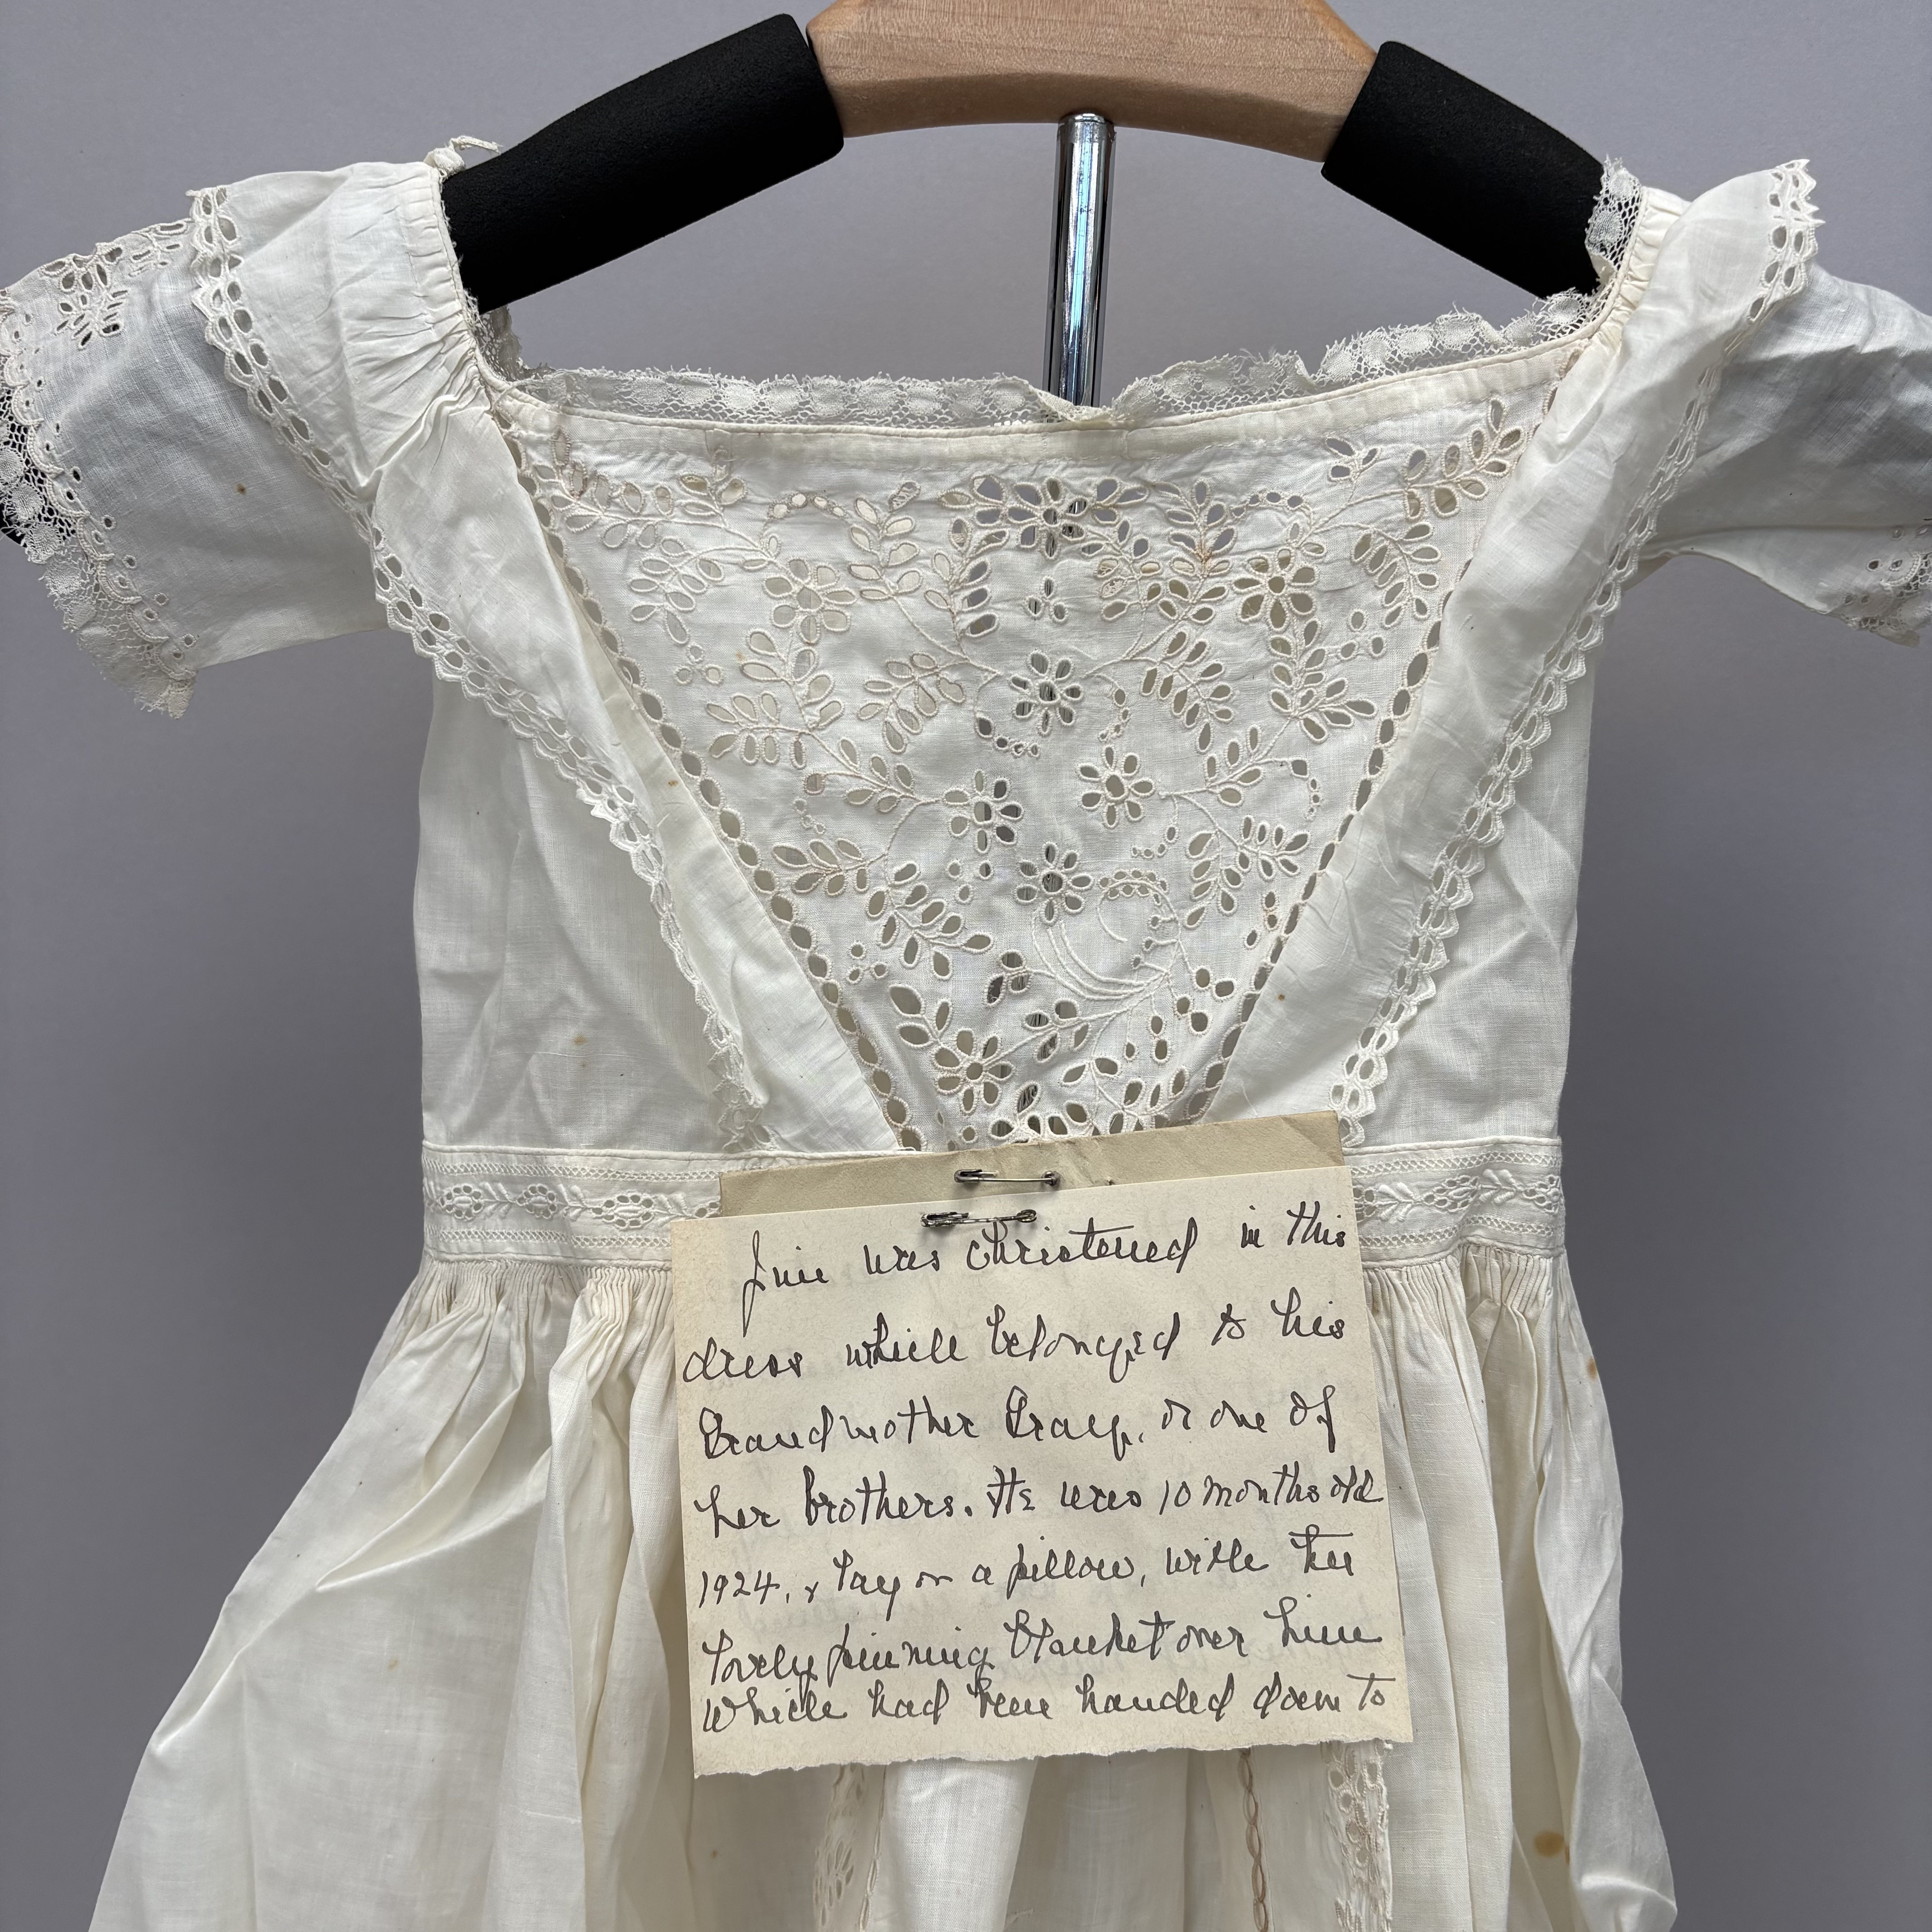 was christened in this
dress which belonged to his
Grandmother Gray, or one of
her brothers. He was 10 months old
1924, & lay on a pillow, with the
lovely pinning blanket over him
which had been handed down to